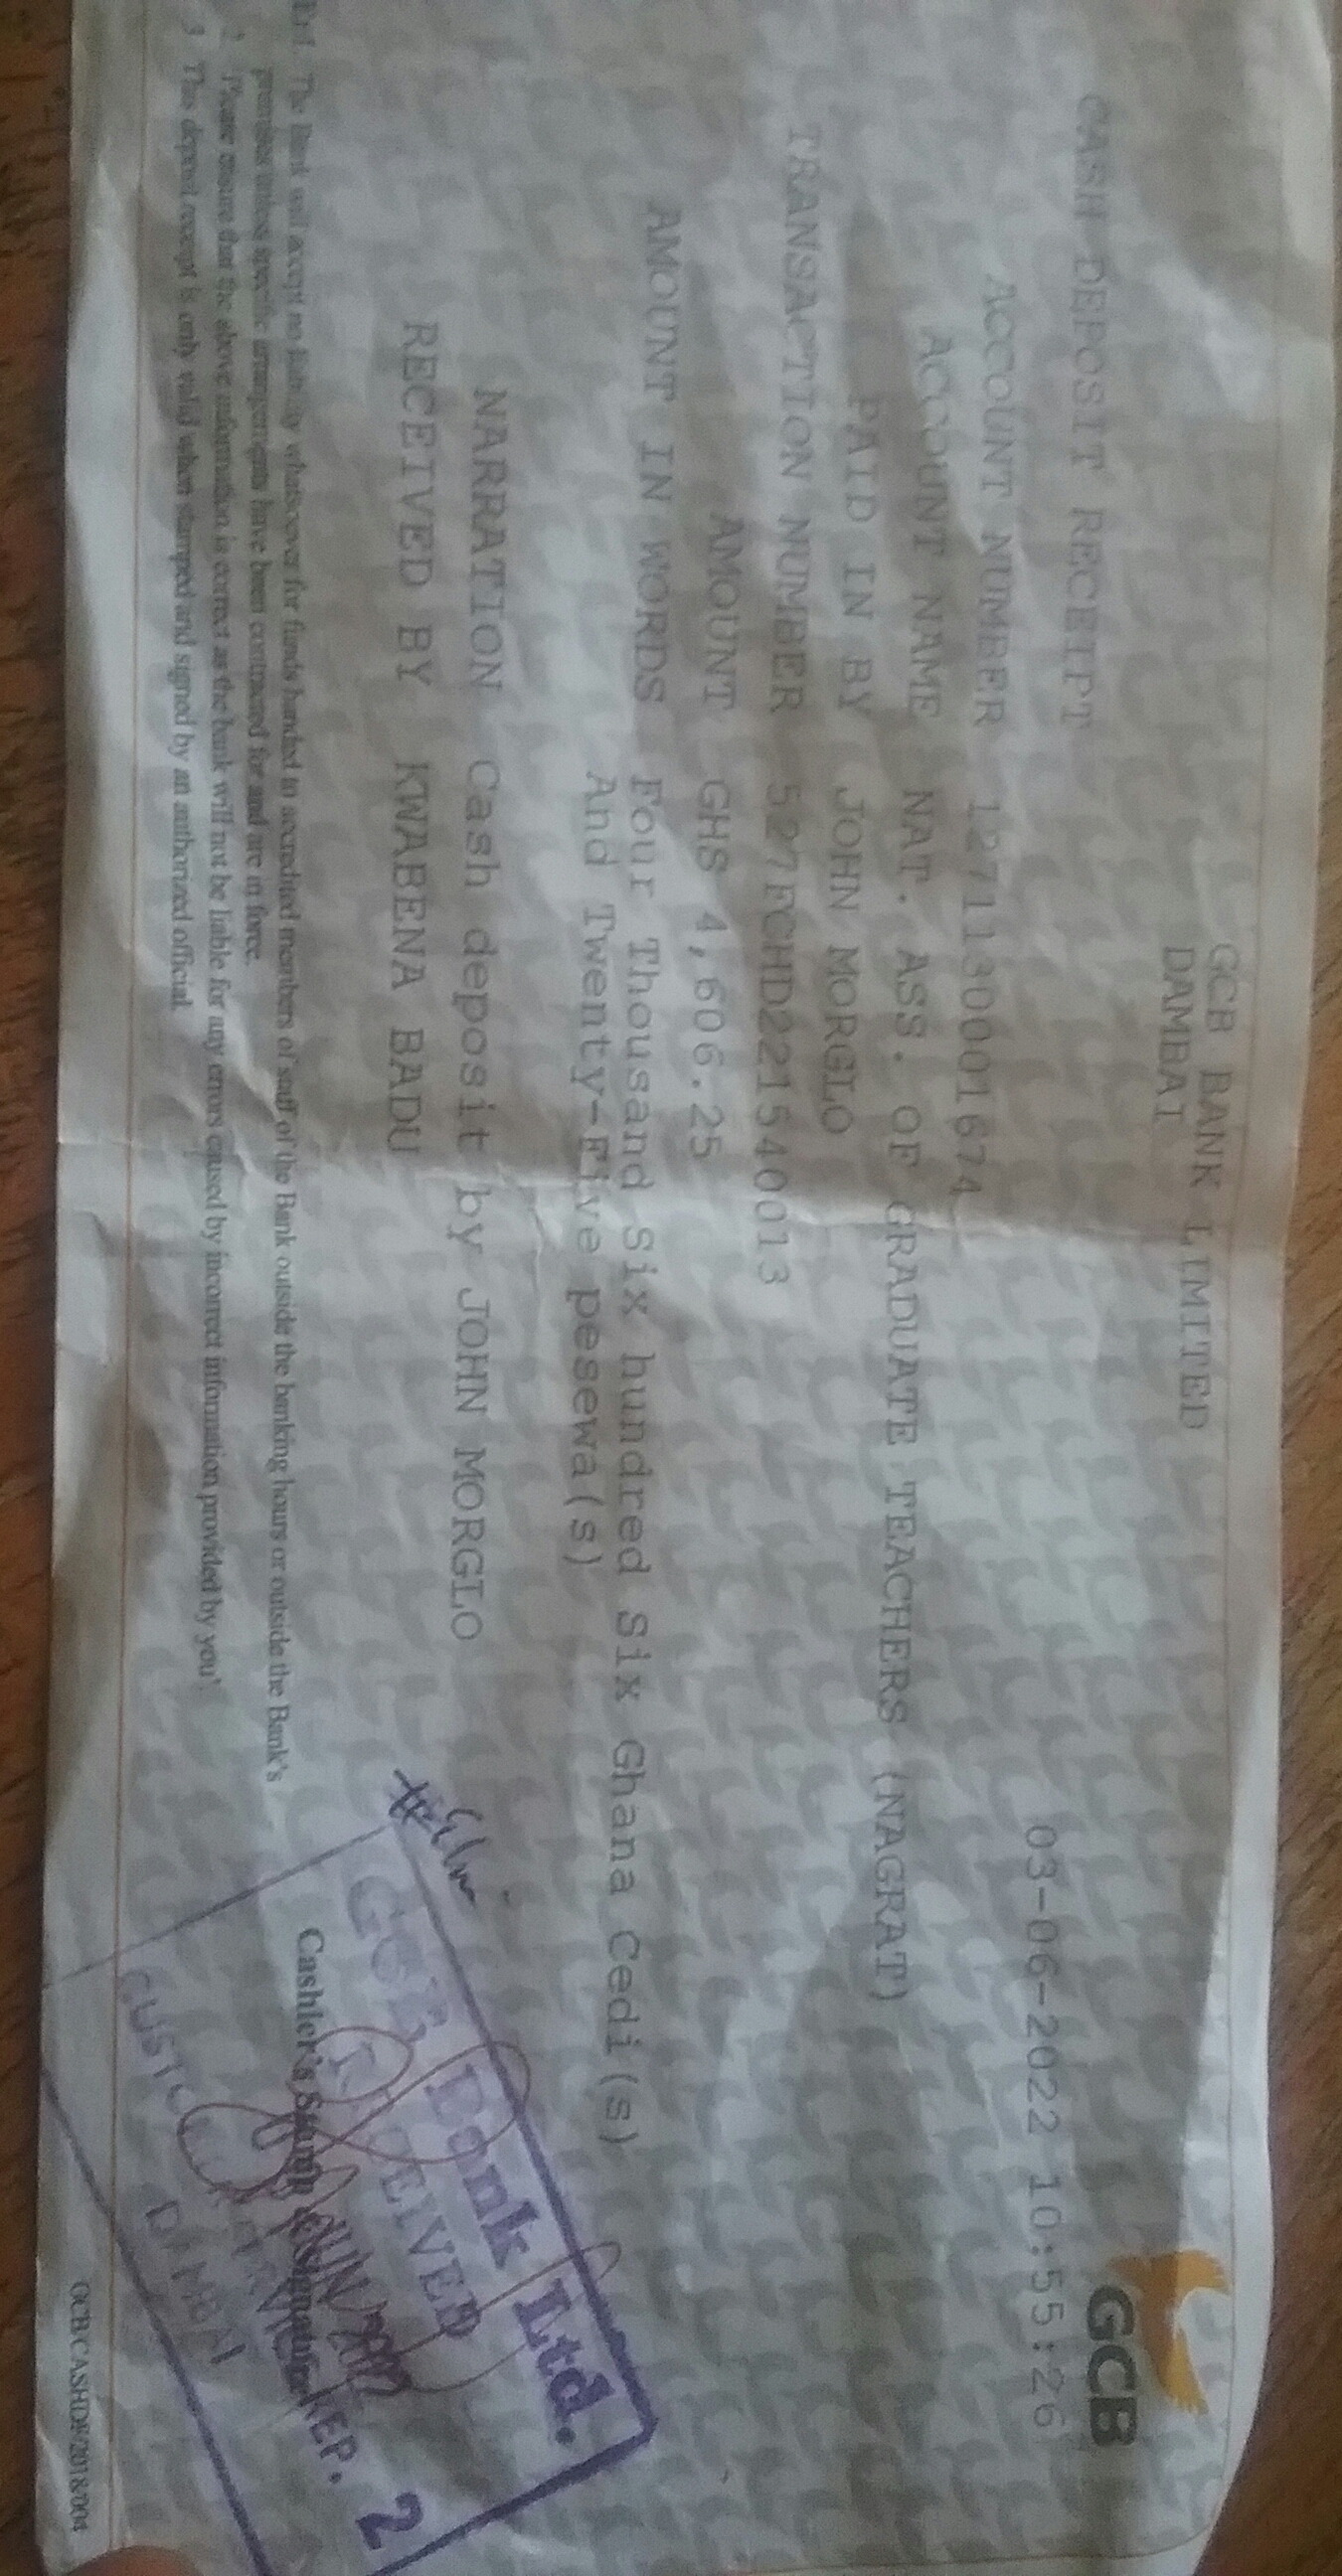 GCB BANK LIMITED
DAMBAI
GCB
CASH DEPOSIT RECEIPT
03-06-2022 10:55:26
ACCOUNT NUMBER 1271130001674
ACCOUNT NAME NAT. ASS. OF GRADUATE TEACHERS (NAGRAT)
PAID IN BY JOHN MORGLO
TRANSACTION NUMBER 527FCHD221540013
AMOUNT GHS 4,606.25
AMOUNT IN WORDS Four Thousand Six hundred Six Ghana Cedi(s)
And Twenty-Five pesewa(s)
NARRATION Cash deposit by JOHN MORGLO
RECEIVED BY KWABENA BADU
1. The Bank will accept no liability whatsoever for funds handed to accredited members of staff of the Bank outside the banking hours or outside the Bank's
premises unless specific arrangements have been contracted for and are in force.
2. Please ensure that the above information is correct as the bank will not be liable for any errors caused by incorrect information provided by you'.
3 This deposit receipt is only valid when stamped and signed by an authorized official.
Cashier's Stamp & Signature
GCB Bank Ltd.
RECEIVED
REP. 2
DAMBAI
GCB CASHDP/2018/004